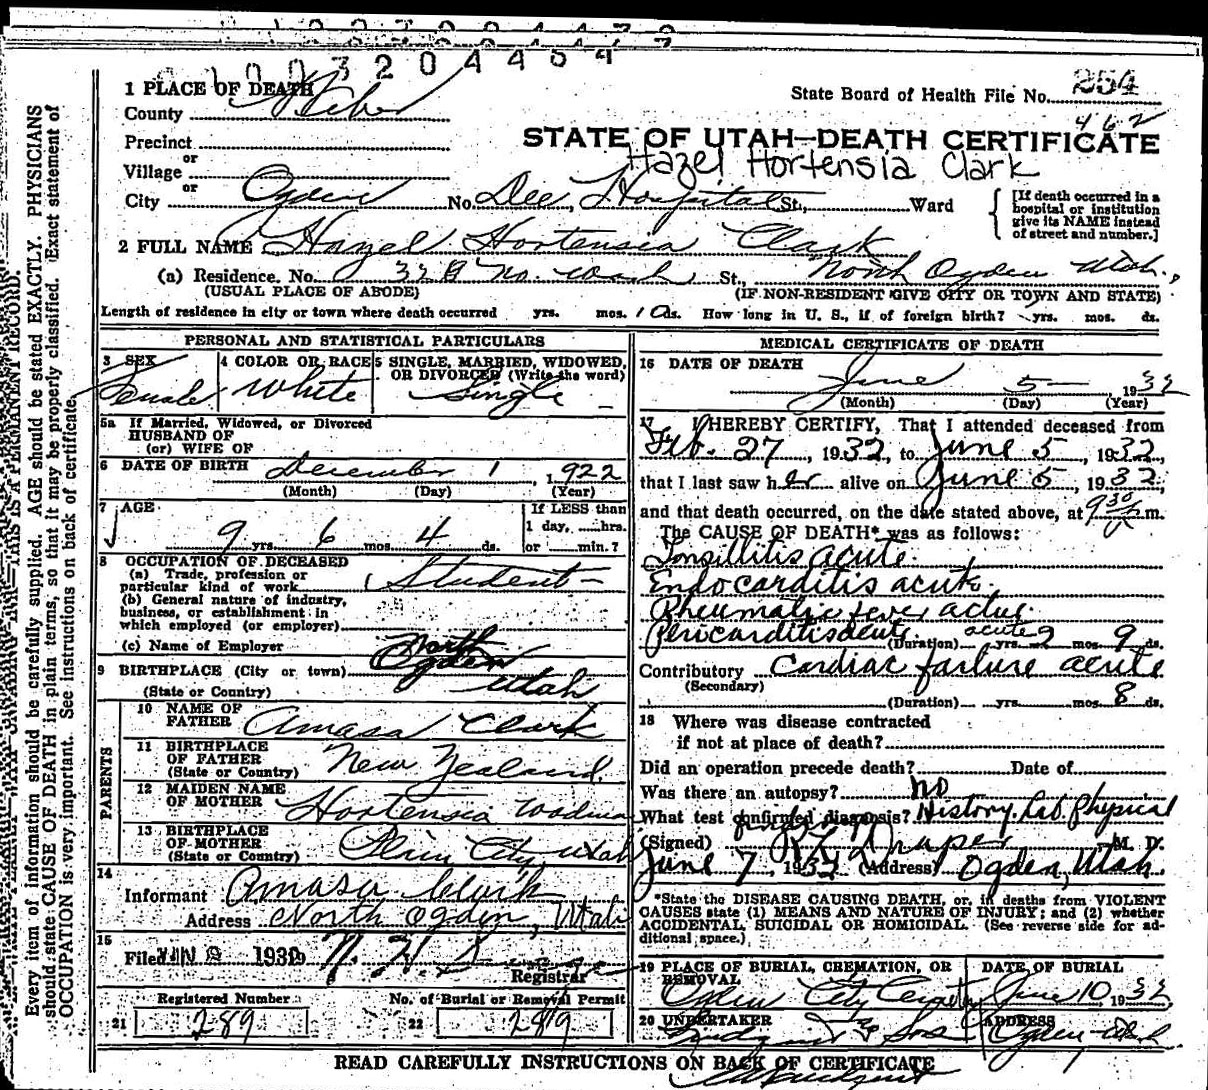 0 3 2 0 4 4 6 4
1 PLACE OF DEATH
County Weber
State Board of Health File No. 254
462
Precinct
or
STATE OF UTAH—DEATH CERTIFICATE
Hazel Hortensia Clark
Village
or
City Ogden No. Dee Hospital St., Ward
[If death occurred in a hospital or institution give its NAME instead of street and number.]
2 FULL NAME Hazel Hortensia Clark
(a) Residence. No. 328 No. Wash St., North Ogden Utah.
(USUAL PLACE OF ABODE) (IF NON-RESIDENT GIVE CITY OR TOWN AND STATE)
Length of residence in city or town where death occurred yrs. mos. 10 ds. How long in U. S., if of foreign birth? yrs. mos. ds.
PERSONAL AND STATISTICAL PARTICULARS
3 SEX Female
4 COLOR OR RACE White
5 SINGLE, MARRIED, WIDOWED, OR DIVORCED (Write the word) Single
5a If Married, Widowed, or Divorced
HUSBAND OF
(or) WIFE OF
6 DATE OF BIRTH December 1, 1922
(Month) (Day) (Year)
7 AGE
9 yrs. 6 mos. 4 ds.
If LESS than
1 day, ......hrs.
or ......min.?
8 OCCUPATION OF DECEASED
(a) Trade, profession or
particular kind of work Student
(b) General nature of industry,
business, or establishment in
which employed (or employer)
(c) Name of Employer
9 BIRTHPLACE (City or town) North Ogden
(State or Country) Utah
PARENTS
10 NAME OF FATHER Amasa Clark
11 BIRTHPLACE OF FATHER (State or Country) New Zealand.
12 MAIDEN NAME OF MOTHER Hortensia
13 BIRTHPLACE OF MOTHER (State or Country) Plain City, Utah
14
Informant Amasa Clark
Address North Ogden, Utah
15
Filed JUN 193
Registrar
Registered Number
21 289
No. of Burial or Removal Permit
22 289
MEDICAL CERTIFICATE OF DEATH
16 DATE OF DEATH
June 5 1932
(Month) (Day) (Year)
17 I HEREBY CERTIFY, That I attended deceased from
Feb. 27, 1932, to June 5, 1932,
that I last saw her alive on June 5, 1932,
and that death occurred, on the date stated above, at 9 30 m.
The CAUSE OF DEATH* was as follows:
Tonsillitis acute.
Endocarditis acute.
Rheumatic fever
Pericarditis acute. acute
(Duration) yrs. 2 mos. 9 ds.
Contributory Cardiac failure acute
(Secondary)
(Duration) yrs. mos. 8 ds.
18 Where was disease contracted
if not at place of death?
Did an operation precede death? Date of
Was there an autopsy? no
What test confirmed diagnosis? History. Lab. Physical
(Signed) Draper M. D.
June 7, 1932 (Address) Ogden, Utah.
*State the DISEASE CAUSING DEATH, or, in deaths from VIOLENT
CAUSES state (1) MEANS AND NATURE OF INJURY; and (2) whether
ACCIDENTAL, SUICIDAL OR HOMICIDAL. (See reverse side for ad-
ditional space.)
19 PLACE OF BURIAL, CREMATION, OR REMOVAL
Ogden City Cemetery
DATE OF BURIAL
June 10, 1932
20 UNDERTAKER
& Sons
ADDRESS
Ogden Utah
READ CAREFULLY INSTRUCTIONS ON BACK OF CERTIFICATE
THIS IS A PERMANENT RECORD.
Every item of information should be carefully supplied. AGE should be stated EXACTLY. PHYSICIANS
should state CAUSE OF DEATH in plain terms, so that it may be properly classified. Exact statement of
OCCUPATION is very important. See instructions on back of certificate.